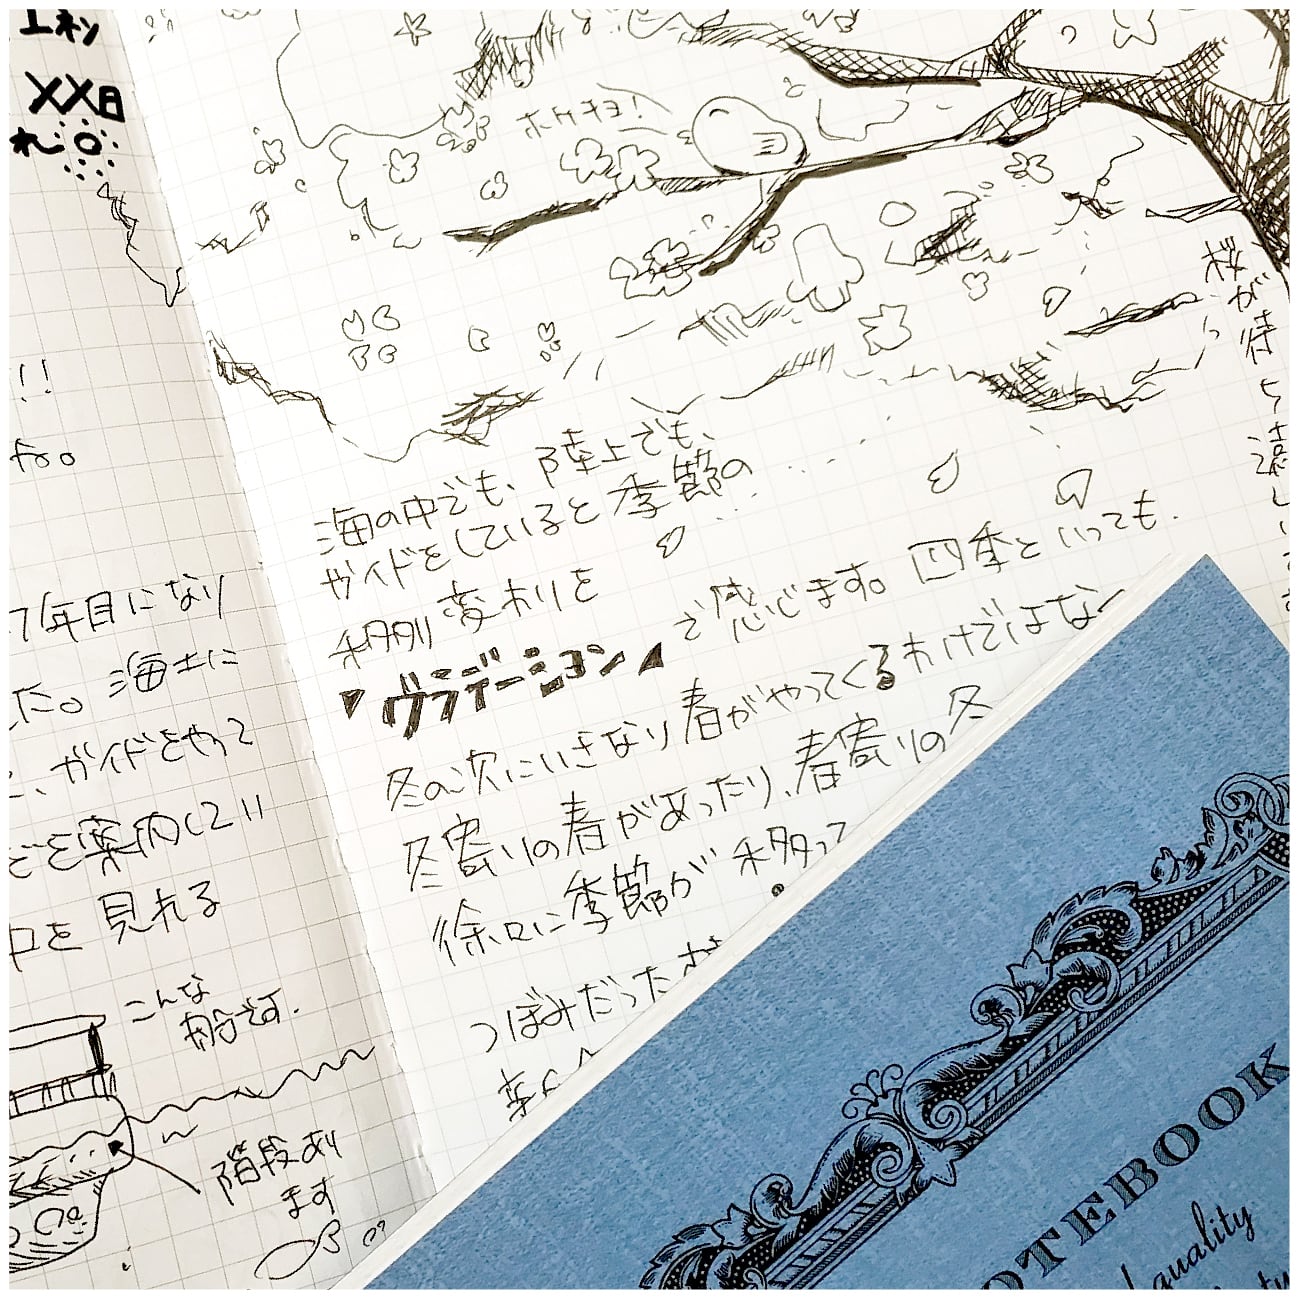 エネン
XX日
れ
!!
ねぇ。
7年目になり
した。海士に
、ガイドをやって
どを案内してい
口を見れる
こんな
船です.
階段あり
ます
ホケキョ!
桜が待ち遠しい
海の中でも、陸上でも、
ガイドをしていると季節の
移り変わりを
グラデーション
で感じます。四季といっても.
冬の次にいきなり春がやってくるわけではな
冬寄りの春があったり、春寄りの冬
徐々に季節が移って
つぼみだった
NOTEBOOK
quality